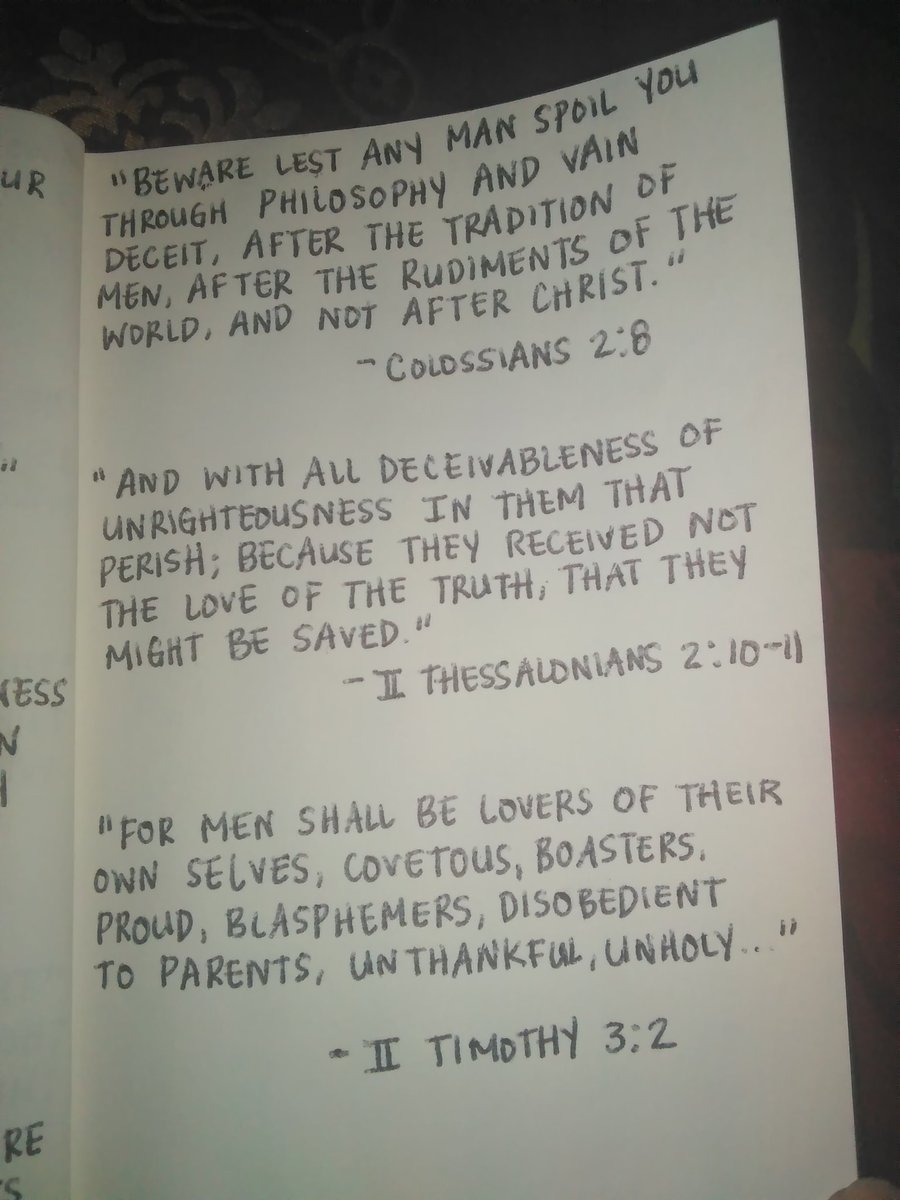 UR
"
NESS
N
RE
"BEWARE LEST ANY MAN SPOIL YOU
THROUGH PHILOSOPHY AND VAIN
DECEIT, AFTER THE TRADITION OF
MEN, AFTER THE RUDIMENTS OF THE
WORLD, AND NOT AFTER CHRIST."
- COLOSSIANS 2:8
"AND WITH ALL DECEIVABLENESS OF
UNRIGHTEOUSNESS IN THEM THAT
PERISH; BECAUSE THEY RECEIVED NOT
THE LOVE OF THE TRUTH, THAT THEY
MIGHT BE SAVED."
- II THESSALONIANS 2:10-11
"FOR MEN SHALL BE LOVERS OF THEIR
OWN SELVES, COVETOUS, BOASTERS,
PROUD, BLASPHEMERS, DISOBEDIENT
TO PARENTS, UNTHANKFUL, UNHOLY..."
- II TIMOTHY 3:2